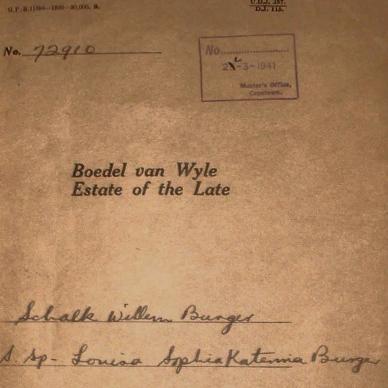 G.P.-S.
U.D.J. 297.
D.J. 115.
No. 72910
No.
-3-1941
Master's Office,
Capetown.
Boedel van Wyle
Estate of the Late
Schalk Willem Burger
S. Sp- Louisa Sophia Katerina Burger